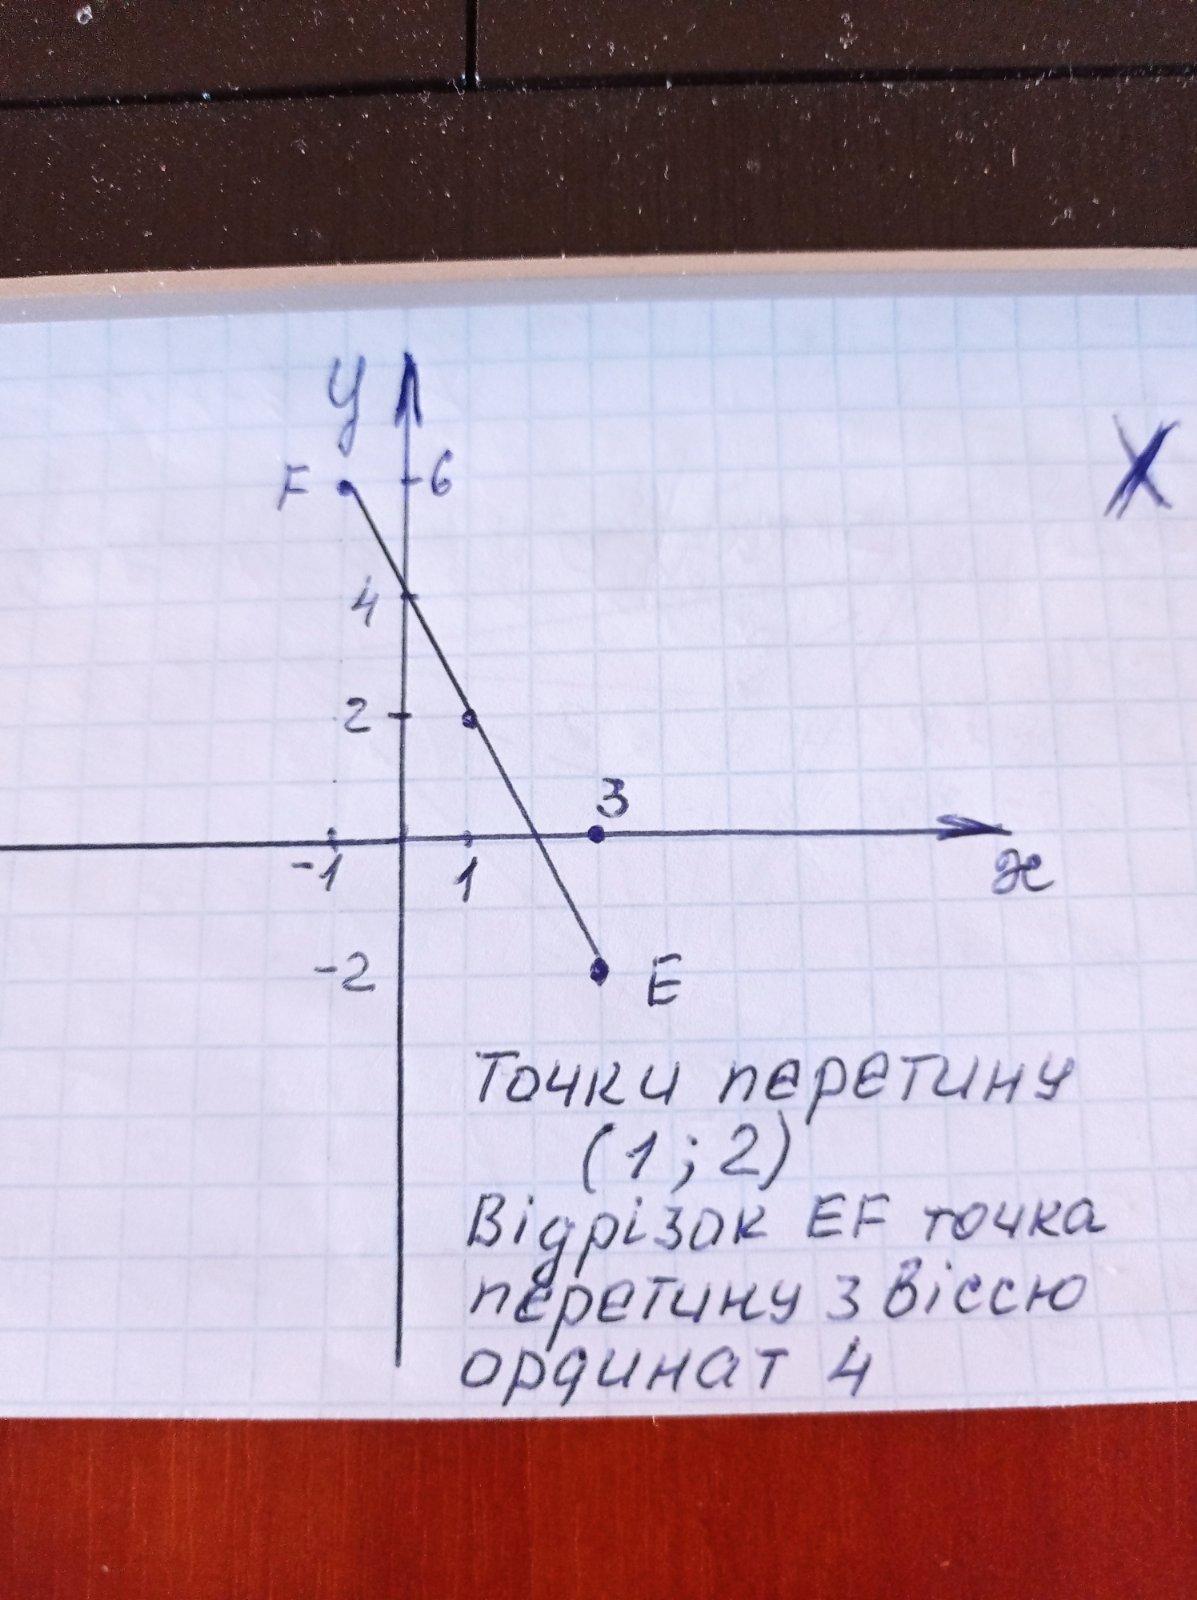 У
X
F
6
4
2
3
-1
1
x
-2
E
Точки перетину
(1;2)
Відрізок EF точка
перетину з віссю
ординат 4